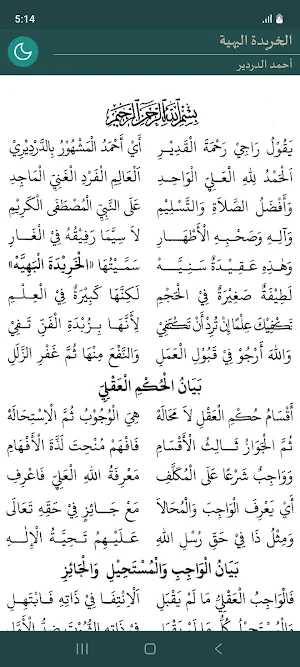 5:14
الخريدة البهية
أحمد الدردير
بِسْمِ اللَّهِ الرَّحْمَنِ الرَّحِيمِ
يَقُولُ رَاجِيْ رَحْمَةَ الْقَدِيْرِ أَيْ أَحْمَدُ الْمَشْهُورُ بِالدَّرْدِيْرِيْ
الْحَمْدُ لِلّٰهِ الْعَلِيِّ الْوَاحِدِ اَلْعَالِمِ الْفَرْدِ الْغَنِيِّ الْمَاجِدِ
وَأَفْضَلُ الصَّلَاةِ وَالتَّسْلِيْمِ عَلَى النَّبِيِّ الْمُصْطَفَى الْكَرِيْمِ
وَآلِهِ وَصَحْبِهِ الْأَطْهَارِ لَا سِيَّمَا رَفِيْقُهُ فِيْ الْغَارِ
وَهٰذِهِ عَقِيْدَةٌ سَنِيَّهْ سَمَّيْتُهَا «الْخَرِيْدَةَ الْبَهِيَّهْ»
لَطِيْفَةٌ صَغِيْرَةٌ فِيْ الْحَجْمِ لٰكِنَّهَا كَبِيْرَةٌ فِيْ الْعِلْمِ
تَكْفِيْكَ عِلْمًا إِنْ تُرِدْ أَنْ تَكْتَفِيْ لِأَنَّهَا بِزُبْدَةِ الْفَنِّ تَفِيْ
وَاللهَ أَرْجُوْ فِيْ قَبُوْلِ الْعَمَلِ وَالنَّفْعَ مِنْهَا ثُمَّ غَفْرَ الزَّلَلِ
بَيَانُ الْحُكْمِ الْعَقْلِيِّ
أَقْسَامُ حُكْمِ الْعَقْلِ لَا مَحَالَهْ هِيَ الْوُجُوْبُ ثُمَّ الْاِسْتِحَالَهْ
ثُمَّ الْجَوَازُ ثَالِثُ الْأَقْسَامِ فَافْهَمْ مُنِحْتَ لَذَّةَ الْأَفْهَامِ
وَوَاجِبٌ شَرْعًا عَلَى الْمُكَلَّفِ مَعْرِفَةُ اللهِ الْعَلِيِّ فَاعْرِفِ
أَيْ يَعْرِفَ الْوَاجِبَ وَالْمُحَالَا مَعَ جَائِزٍ فِيْ حَقِّهِ تَعَالَى
وَمِثْلُ ذَا فِيْ حَقِّ رُسْلِ اللهِ عَلَيْهِمُ تَحِيَّةُ الْإِلٰهِ
بَيَانُ الْوَاجِبِ وَالْمُسْتَحِيْلِ وَالْجَائِزِ
فَالْوَاجِبُ الْعَقْلِيُّ مَا لَمْ يَقْبَلِ الْاِنْتِفَا فِيْ ذَاتِهِ فَابْتَهِلِ
وَالْمُسْتَحِيْلُ كُلُّ مَا لَمْ يَقْبَلِ فِيْ ذَاتِهِ الثُّبُوْتَ ضِدُّ الْأَوَّلِ